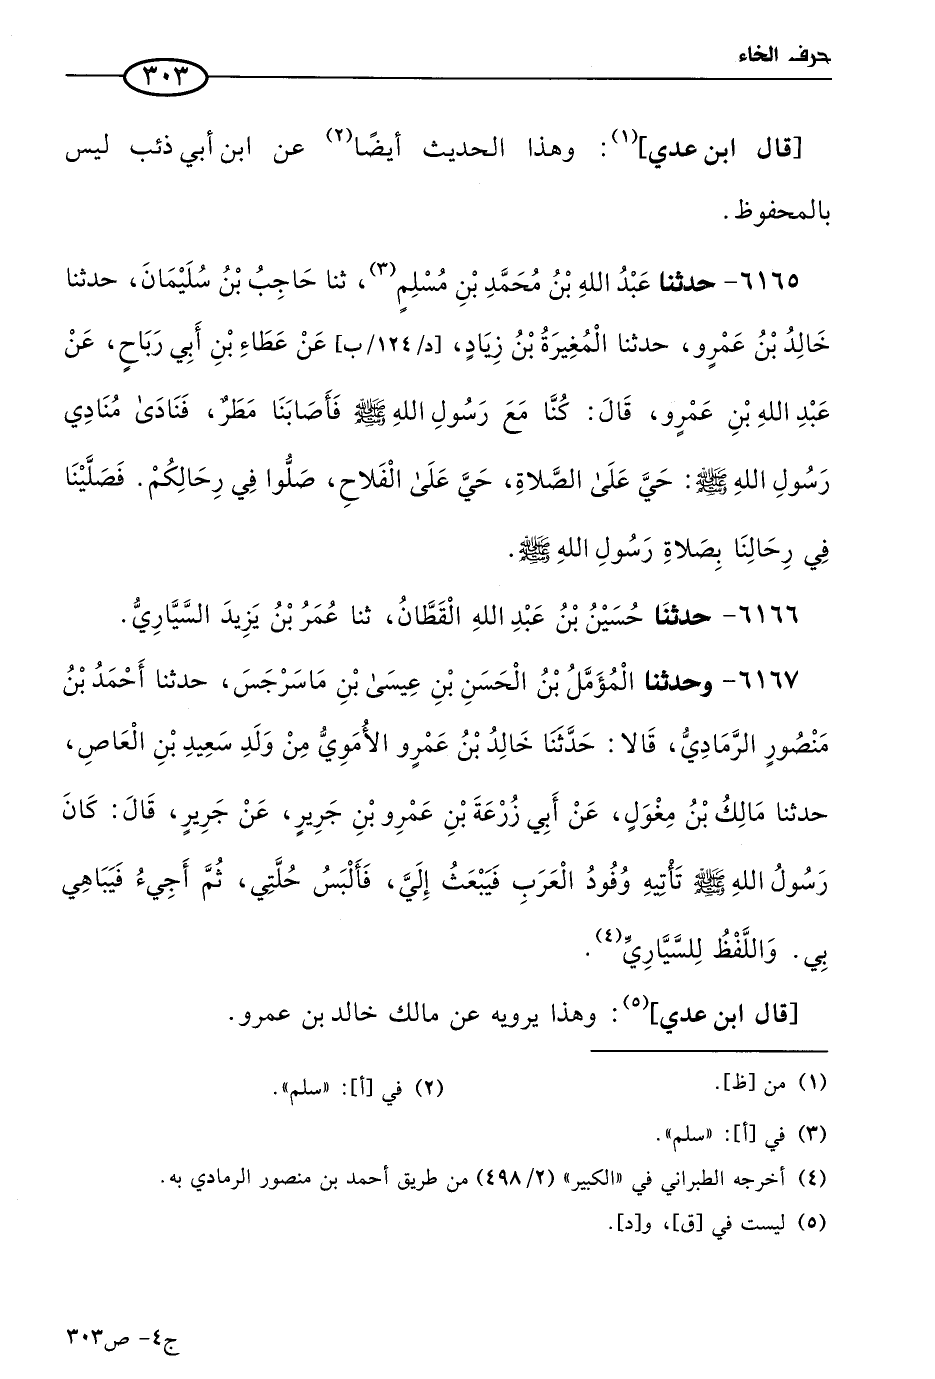 حرف الخاء
٣٠٣
[قال ابن عدي](١): وهذا الحديث أيضًا(٢) عن ابن أبي ذئب ليس
بالمحفوظ.
٦١٦٥- حدثنا عَبْدُ اللهِ بْنُ مُحَمَّدِ بْنِ مُسْلِمٍ(٣)، ثنا حَاجِبُ بْنُ سُلَيْمَانَ، حدثنا
خَالِدُ بْنُ عَمْرٍو، حدثنا الْمُغِيرَةُ بْنُ زِيَادٍ، [د/١٢٤/ب] عَنْ عَطَاءِ بْنِ أَبِي رَبَاحٍ، عَنْ
عَبْدِ اللهِ بْنِ عَمْرٍو، قَالَ: كُنَّا مَعَ رَسُولِ اللهِ ﷺ فَأَصَابَنَا مَطَرٌ، فَنَادَىٰ مُنَادِي
رَسُولِ اللهِ ﷺ: حَيَّ عَلَىٰ الصَّلاةِ، حَيَّ عَلَىٰ الْفَلاحِ، صَلُّوا فِي رِحَالِكُمْ. فَصَلَّيْنَا
فِي رِحَالِنَا بِصَلاةِ رَسُولِ اللهِ ﷺ.
٦١٦٦- حدثنَا حُسَيْنُ بْنُ عَبْدِ اللهِ الْقَطَّانُ، ثنا عُمَرُ بْنُ يَزِيدَ السَّيَّارِيُّ.
٦١٦٧- وحدثنا الْمُؤَمَّلُ بْنُ الْحَسَنِ بْنِ عِيسَىٰ بْنِ مَاسَرْجَسَ، حدثنا أَحْمَدُ بْنُ
مَنْصُورٍ الرَّمَادِيُّ، قَالا: حَدَّثَنَا خَالِدُ بْنُ عَمْرٍو الأُمَوِيُّ مِنْ وَلَدِ سَعِيدِ بْنِ الْعَاصِ،
حدثنا مَالِكُ بْنُ مِغْوَلٍ، عَنْ أَبِي زُرْعَةَ بْنِ عَمْرِو بْنِ جَرِيرٍ، عَنْ جَرِيرٍ، قَالَ: كَانَ
رَسُولُ اللهِ ﷺ تَأْتِيهِ وُفُودُ الْعَرَبِ فَيَبْعَثُ إِلَيَّ، فَأَلْبَسُ حُلَّتِي، ثُمَّ أَجِيءُ فَيَبَاهِي
بِي. وَاللَّفْظُ لِلسَّيَّارِيِّ(٤).
[قال ابن عدي](٥): وهذا يرويه عن مالك خالد بن عمرو.
(١) من [ظ]. (٢) في [أ]: «سلم».
(٣) في [أ]: «سلم».
(٤) أخرجه الطبراني في «الكبير» (٢/ ٤٩٨) من طريق أحمد بن منصور الرمادي به.
(٥) ليست في [ق]، و[د].
ج٤- ص٣٠٣